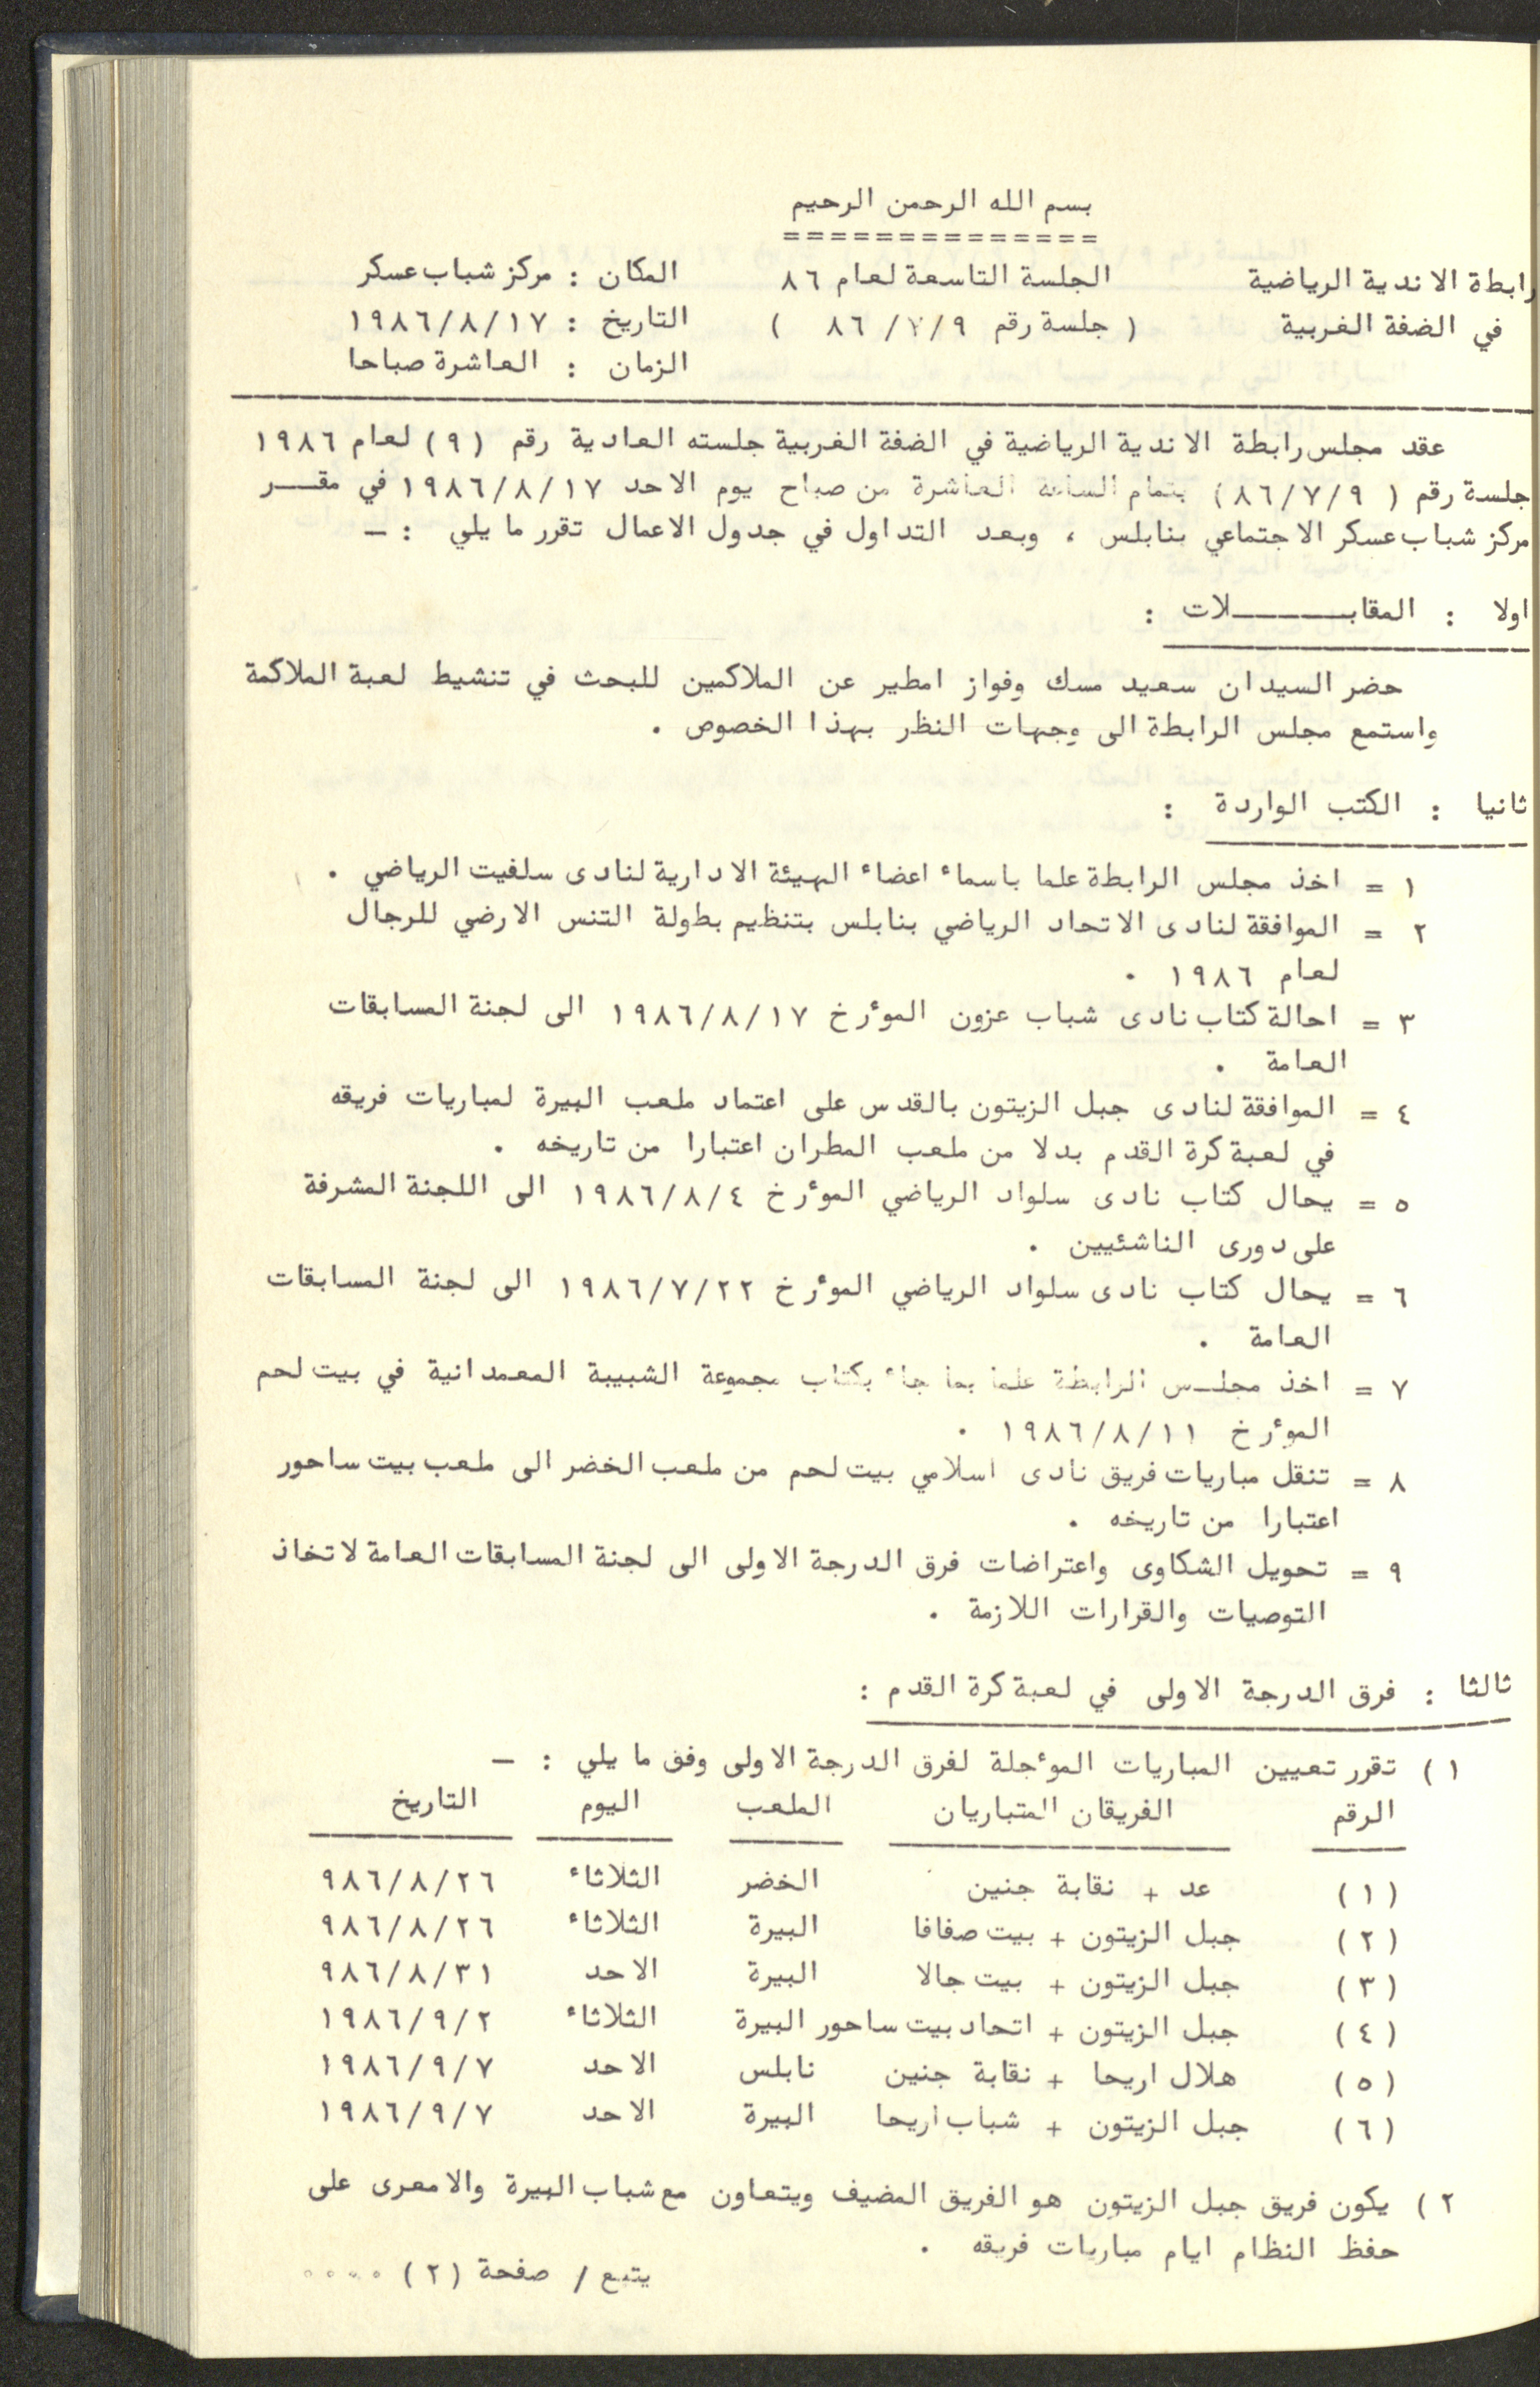 بسم الله الرحمن الرحيم
==============
رابطة الاندية الرياضية الجلسة التاسعة لعام ٨٦ المكان : مركز شباب عسكر
في الضفة الغربية ( جلسة رقم ٨٦ /٧/٩ ) التاريخ : ١٩٨٦/٨/١٧
الزمان : العاشرة صباحا
عقد مجلس رابطة الاندية الرياضية في الضفة الغربية جلسته العادية رقم (٩) لعام ١٩٨٦
جلسة رقم ( ٨٦/٧/٩) بتمام الساعة العاشرة من صباح يوم الاحد ١٩٨٦/٨/١٧ في مقـــر
مركز شباب عسكر الاجتماعي بنابلس ، وبعد التداول في جدول الاعمال تقرر ما يلي : –
اولا : المقابـــــــلات :
حضر السيدان سعيد مسك وفواز امطير عن الملاكمين للبحث في تنشيط لعبة الملاكمة
واستمع مجلس الرابطة الى وجهات النظر بهذا الخصوص .
ثانيا : الكتب الواردة :
١ = اخذ مجلس الرابطة علما باسماء اعضاء الهيئة الادارية لنادى سلفيت الرياضي .
٢ = الموافقة لنادى الاتحاد الرياضي بنابلس بتنظيم بطولة التنس الارضي للرجال
لعام ١٩٨٦ .
٣ = احالة كتاب نادى شباب عزون المؤرخ ١٩٨٦/٨/١٧ الى لجنة المسابقات
العامة .
٤ = الموافقة لنادى جبل الزيتون بالقدس على اعتماد ملعب البيرة لمباريات فريقه
في لعبة كرة القدم بدلا من ملعب المطران اعتبارا من تاريخه .
٥ = يحال كتاب نادى سلواد الرياضي المؤرخ ١٩٨٦/٨/٤ الى اللجنة المشرفة
على دورى الناشئيين .
٦ = يحال كتاب نادى سلواد الرياضي المؤرخ ١٩٨٦/٧/٢٢ الى لجنة المسابقات
العامة .
٧ = اخذ مجلـس الرابطة علما بما جاء بكتاب مجموعة الشبيبة المعمدانية في بيت لحم
المؤرخ ١٩٨٦/٨/١١ .
٨ = تنقل مباريات فريق نادى اسلامي بيت لحم من ملعب الخضر الى ملعب بيت ساحور
اعتبارا من تاريخه .
٩ = تحويل الشكاوى واعتراضات فرق الدرجة الاولى الى لجنة المسابقات العامة لاتخاذ
التوصيات والقرارات اللازمة .
ثالثا : فرق الدرجة الاولى في لعبة كرة القدم :
١ ) تقرر تعيين المباريات المؤجلة لفرق الدرجة الاولى وفق ما يلي : –
الرقم الفريقان المتباريان الملعب اليوم التاريخ
(١) عد + نقابة جنين الخضر الثلاثاء ٩٨٦/٨/٢٦
(٢) جبل الزيتون + بيت صفافا البيرة الثلاثاء ٩٨٦/٨/٢٦
(٣) جبل الزيتون + بيت جالا البيرة الاحد ٩٨٦/٨/٣١
(٤) جبل الزيتون + اتحاد بيت ساحور البيرة الثلاثاء ١٩٨٦/٩/٢
(٥) هلال اريحا + نقابة جنين نابلس الاحد ١٩٨٦/٩/٧
(٦) جبل الزيتون + شباب اريحا البيرة الاحد ١٩٨٦/٩/٧
٢ ) يكون فريق جبل الزيتون هو الفريق المضيف ويتعاون مع شباب البيرة والامعرى على
حفظ النظام ايام مباريات فريقه .
يتبع / صفحة (٢) ....